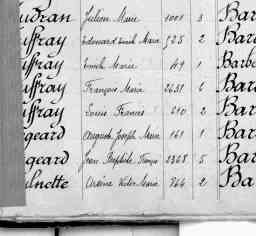 Julien Marie 1001 3 Bar
ffray Edouard Emile Marie 525 2 Bar
ffray Emile Marie 49 1 Barb
ffray François Marie 2431 6 Bar
ffray Louis Francois 210 2 Bar
geard Auguste Joseph Marie 161 1 Bar
geard Jean Baptiste 2368 5 Bar
lnette Arsène Victor Marie 264 2 Ba